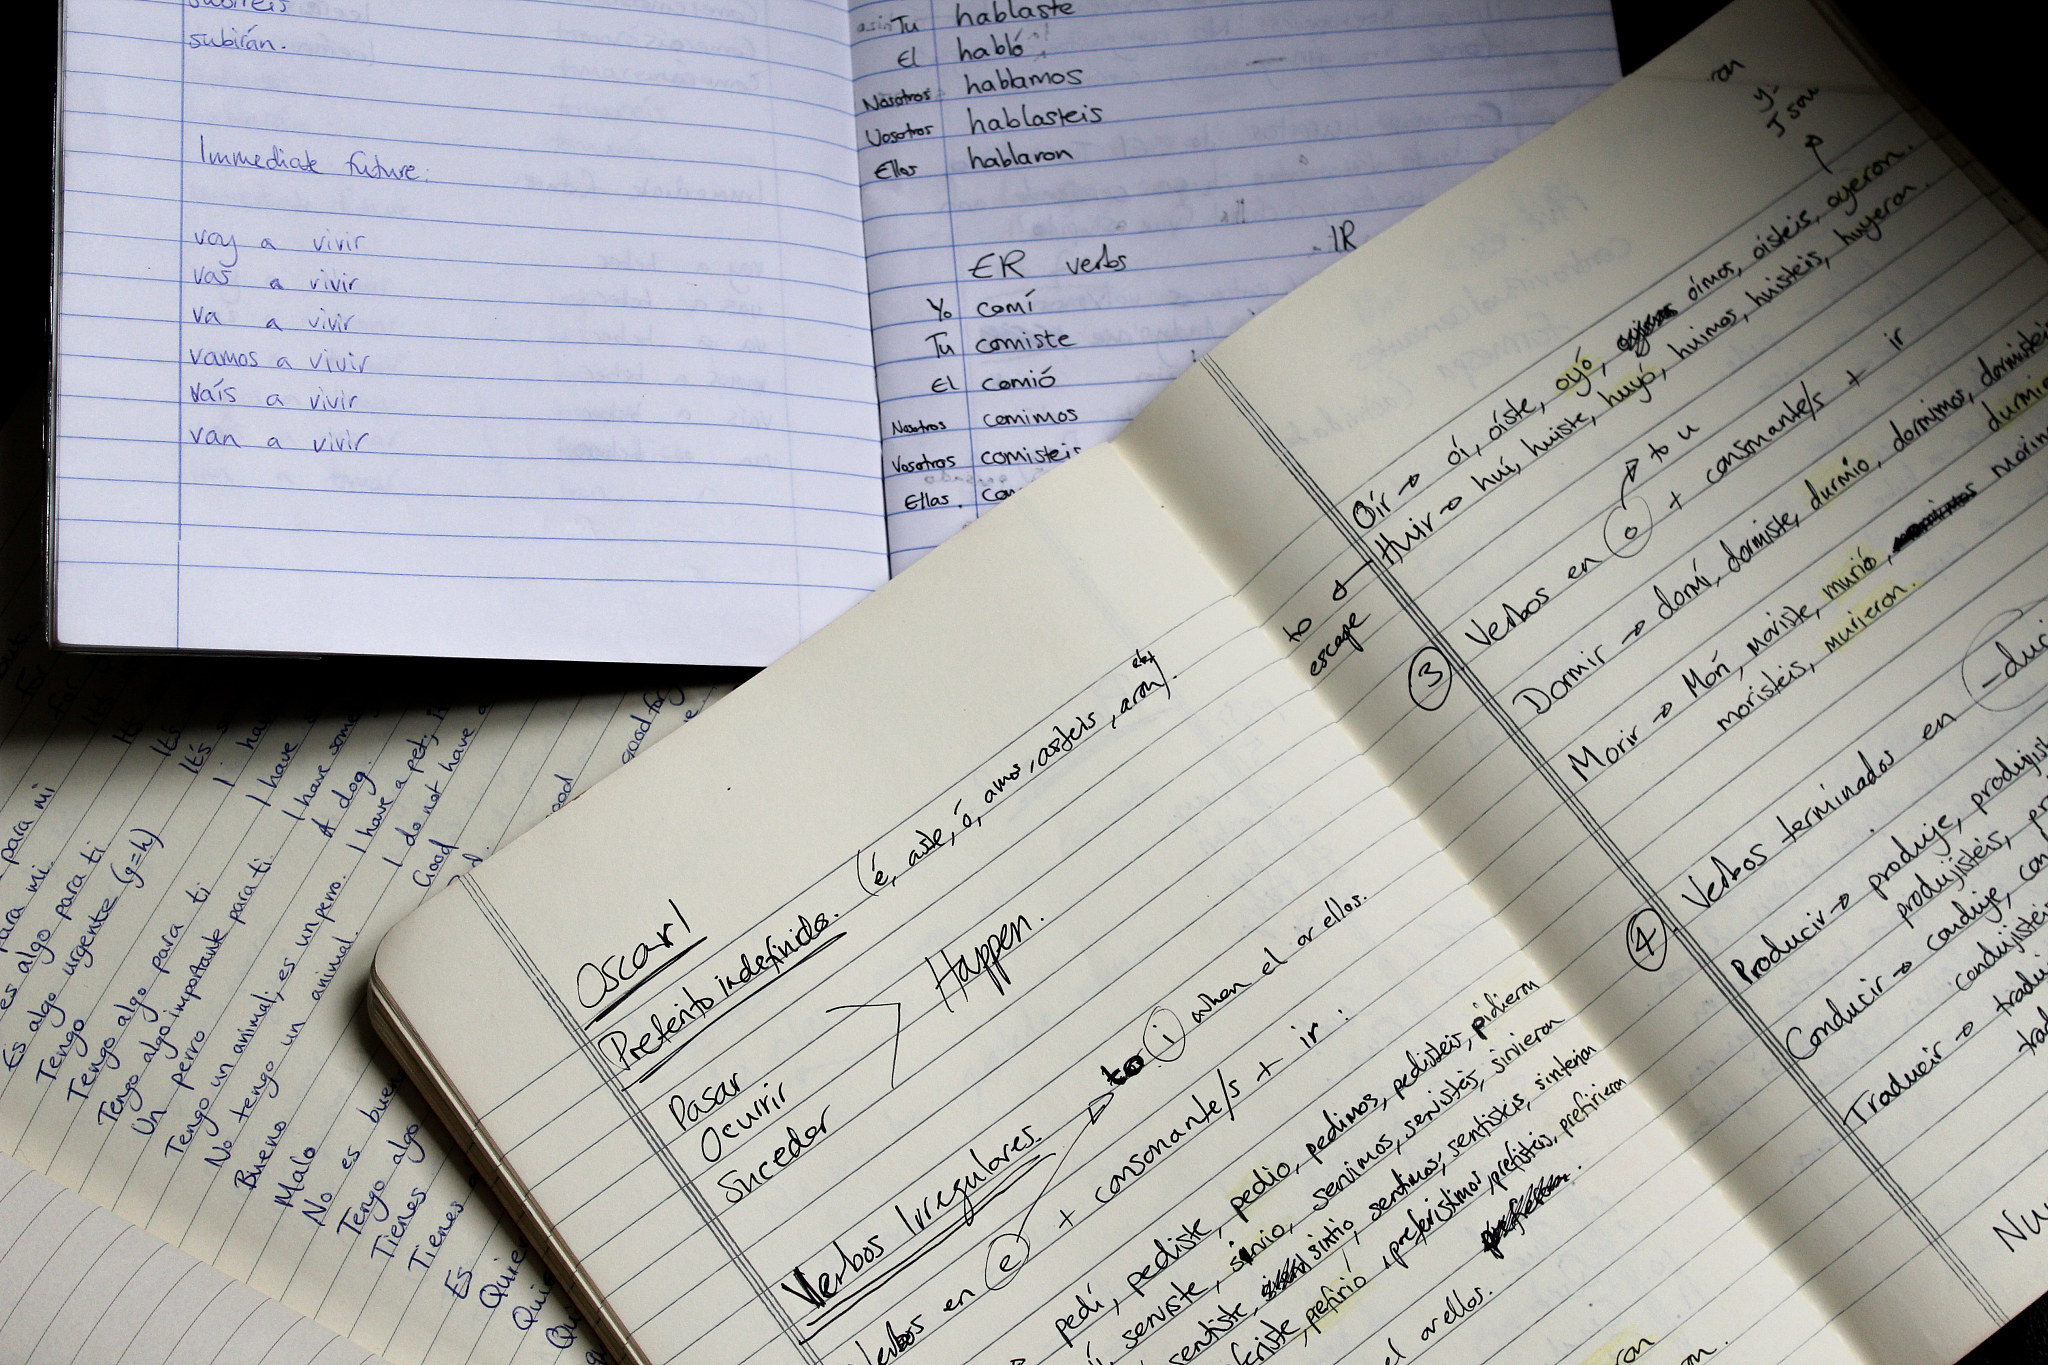 subiréis
subirán.
Immediate future.
voy a vivir
vas a vivir
va a vivir
vamos a vivir
vaís a vivir
van a vivir
Tu hablaste
El habló
Nosotros hablamos
Vosotros hablasteis
Ellas hablaron
ER verbs IR
Yo comí
Tu comiste
El comió
Nosotros comimos
Vosotros comisteis
Ellas.
Oír → oí, oíste, oyó, oímos, oísteis, oyeron.
Huir → huí, huiste, huyó, huimos, huisteis, huyeron.
to escape
to u
③ Verbos en o + consonante/s + ir
Dormir → dormí, dormiste, durmio, dormimos, dormisteis
Morir → Morí, moriste, murió,
moristeis, murieron.
④ Verbos terminados en -duci
Producir → produje, produjist
produjisteis,
Conducir → conduje,
condujisteis
Traducir → tradu
Oscar 1
Preterito indefinido. (é, aste, ó, amos, asteis, aron).
Pasar
Ocurrir
Suceder
Happen.
Verbos Irregulares.
to i when el or ellos.
Verbos en e + consonante/s + ir :
pedí, pediste, pedio, pedimos, pedisteis, pidieron
serviste, sirvio, servimos, servisteis, sirvieron
sentiste, sintio, sentimos, sentisteis, sintieron
prefirio, preferistimos, prefisteis, prefirieron
el or ellos.
para mi
para mi.
es algo para ti
Es algo urgente (g=h)
Tengo
Tengo algo para ti
Tengo algo importante para ti
Un perro
Tengo un animal; es un perro.
No tengo un animal.
Bueno
Malo
No es buen
Tengo algo
Tienes
Tienes
Es
Quie
Quie
for
for
It's
It's
It's
I ha
I have
I have some
A dog.
I have a pet; it
I do not have a
Good
good for